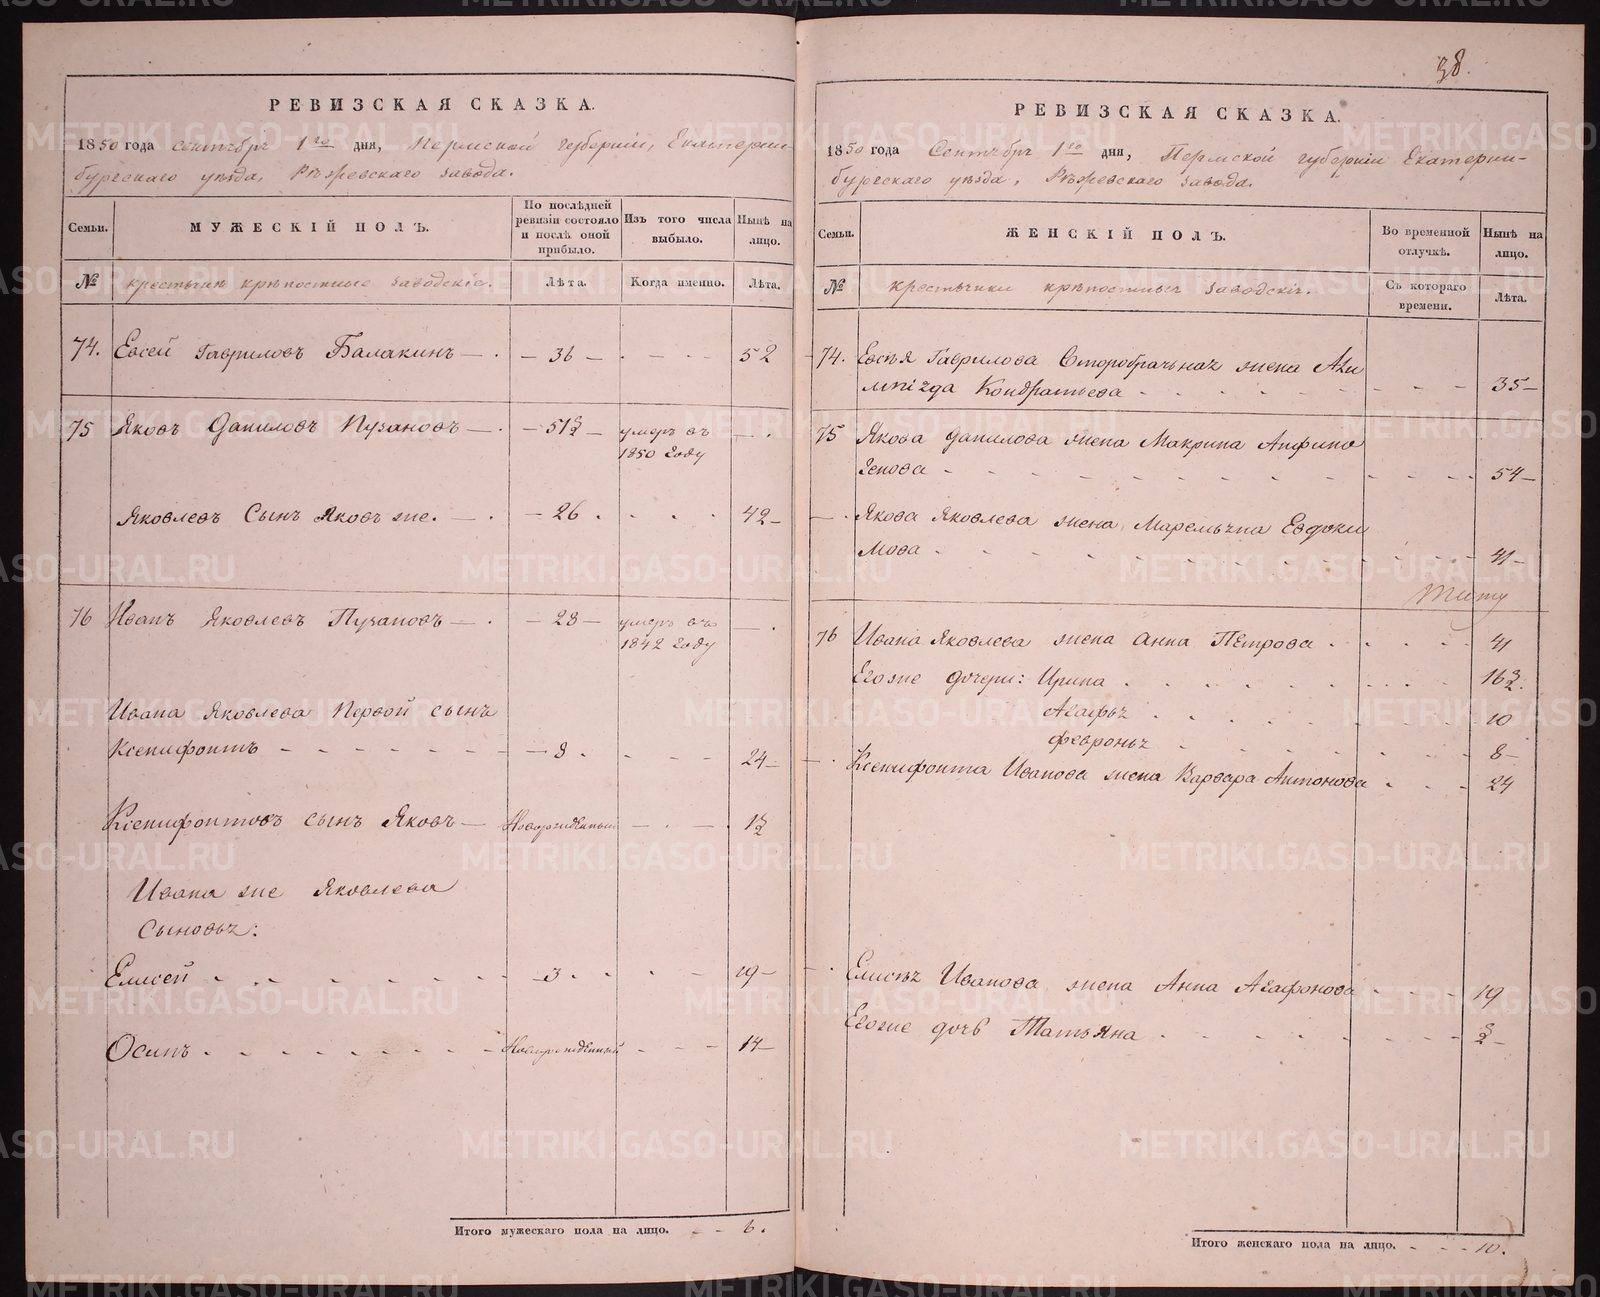 38.
РЕВИЗСКАЯ СКАЗКА.
1850 года Сентября 1го дня, Пермской губернии, Екатерин-
бургскаго уезда, Режевскаго завода.
Семьи.
МУЖЕСКІЙ ПОЛЪ.
По послѣдней ревизіи состояло и послѣ оной прибыло.
Изъ того числа выбыло.
Нынѣ на лицо.
№
крестьяне крѣпостные заводскіе.
Лѣта.
Когда именно.
Лѣта.
74. Евсей Гавриловъ Балакинъ — 36 — 52
75 Яковъ Даниловъ Пузановъ — 51½ — умеръ въ
1850 году
Яковлевъ Сынъ Яковъ же. — 26 42
76 Иванъ Яковлевъ Пузановъ — 28 — умеръ въ
1842 году
Ивана Яковлева Первой сынъ
Ксенифонтъ — 8 24
Ксенифонтовъ сынъ Яковъ — Новорожденный 1½
Ивана же Яковлева
Сыновья:
Елисей 3 19
Осипъ Новорожденный 14
Итого мужескаго пола на лицо. 6.
РЕВИЗСКАЯ СКАЗКА.
1850 года Сентября 1го дня, Пермской губерніи Екатерин-
бургскаго уѣзда, Режевскаго завода.
Семьи.
ЖЕНСКІЙ ПОЛЪ.
Во временной отлучкѣ.
Нынѣ на лицо.
№
крестьянки крѣпостныя заводскія.
Съ котораго времени.
Лѣта.
74. Евсея Гаврилова Второбрачьная жена
Кондратьева 35
75 Якова Данилова жена Макрина Анфино
генова 54
Якова Яковлева жена Маремьяна Евдоки
мова 41
76 Ивана Яковлева жена Анна Петрова 41
Егоже дочери: Ирина 16½.
Агафья 10
Февронья 8
Ксенифонта Иванова жена Варвара Антонова 24
Елисея Иванова жена Анна Агафонова 19
Егоже дочь Татьяна ½
Итого женскаго пола на лицо. 10.
METRIKI.GASO-URAL.RU